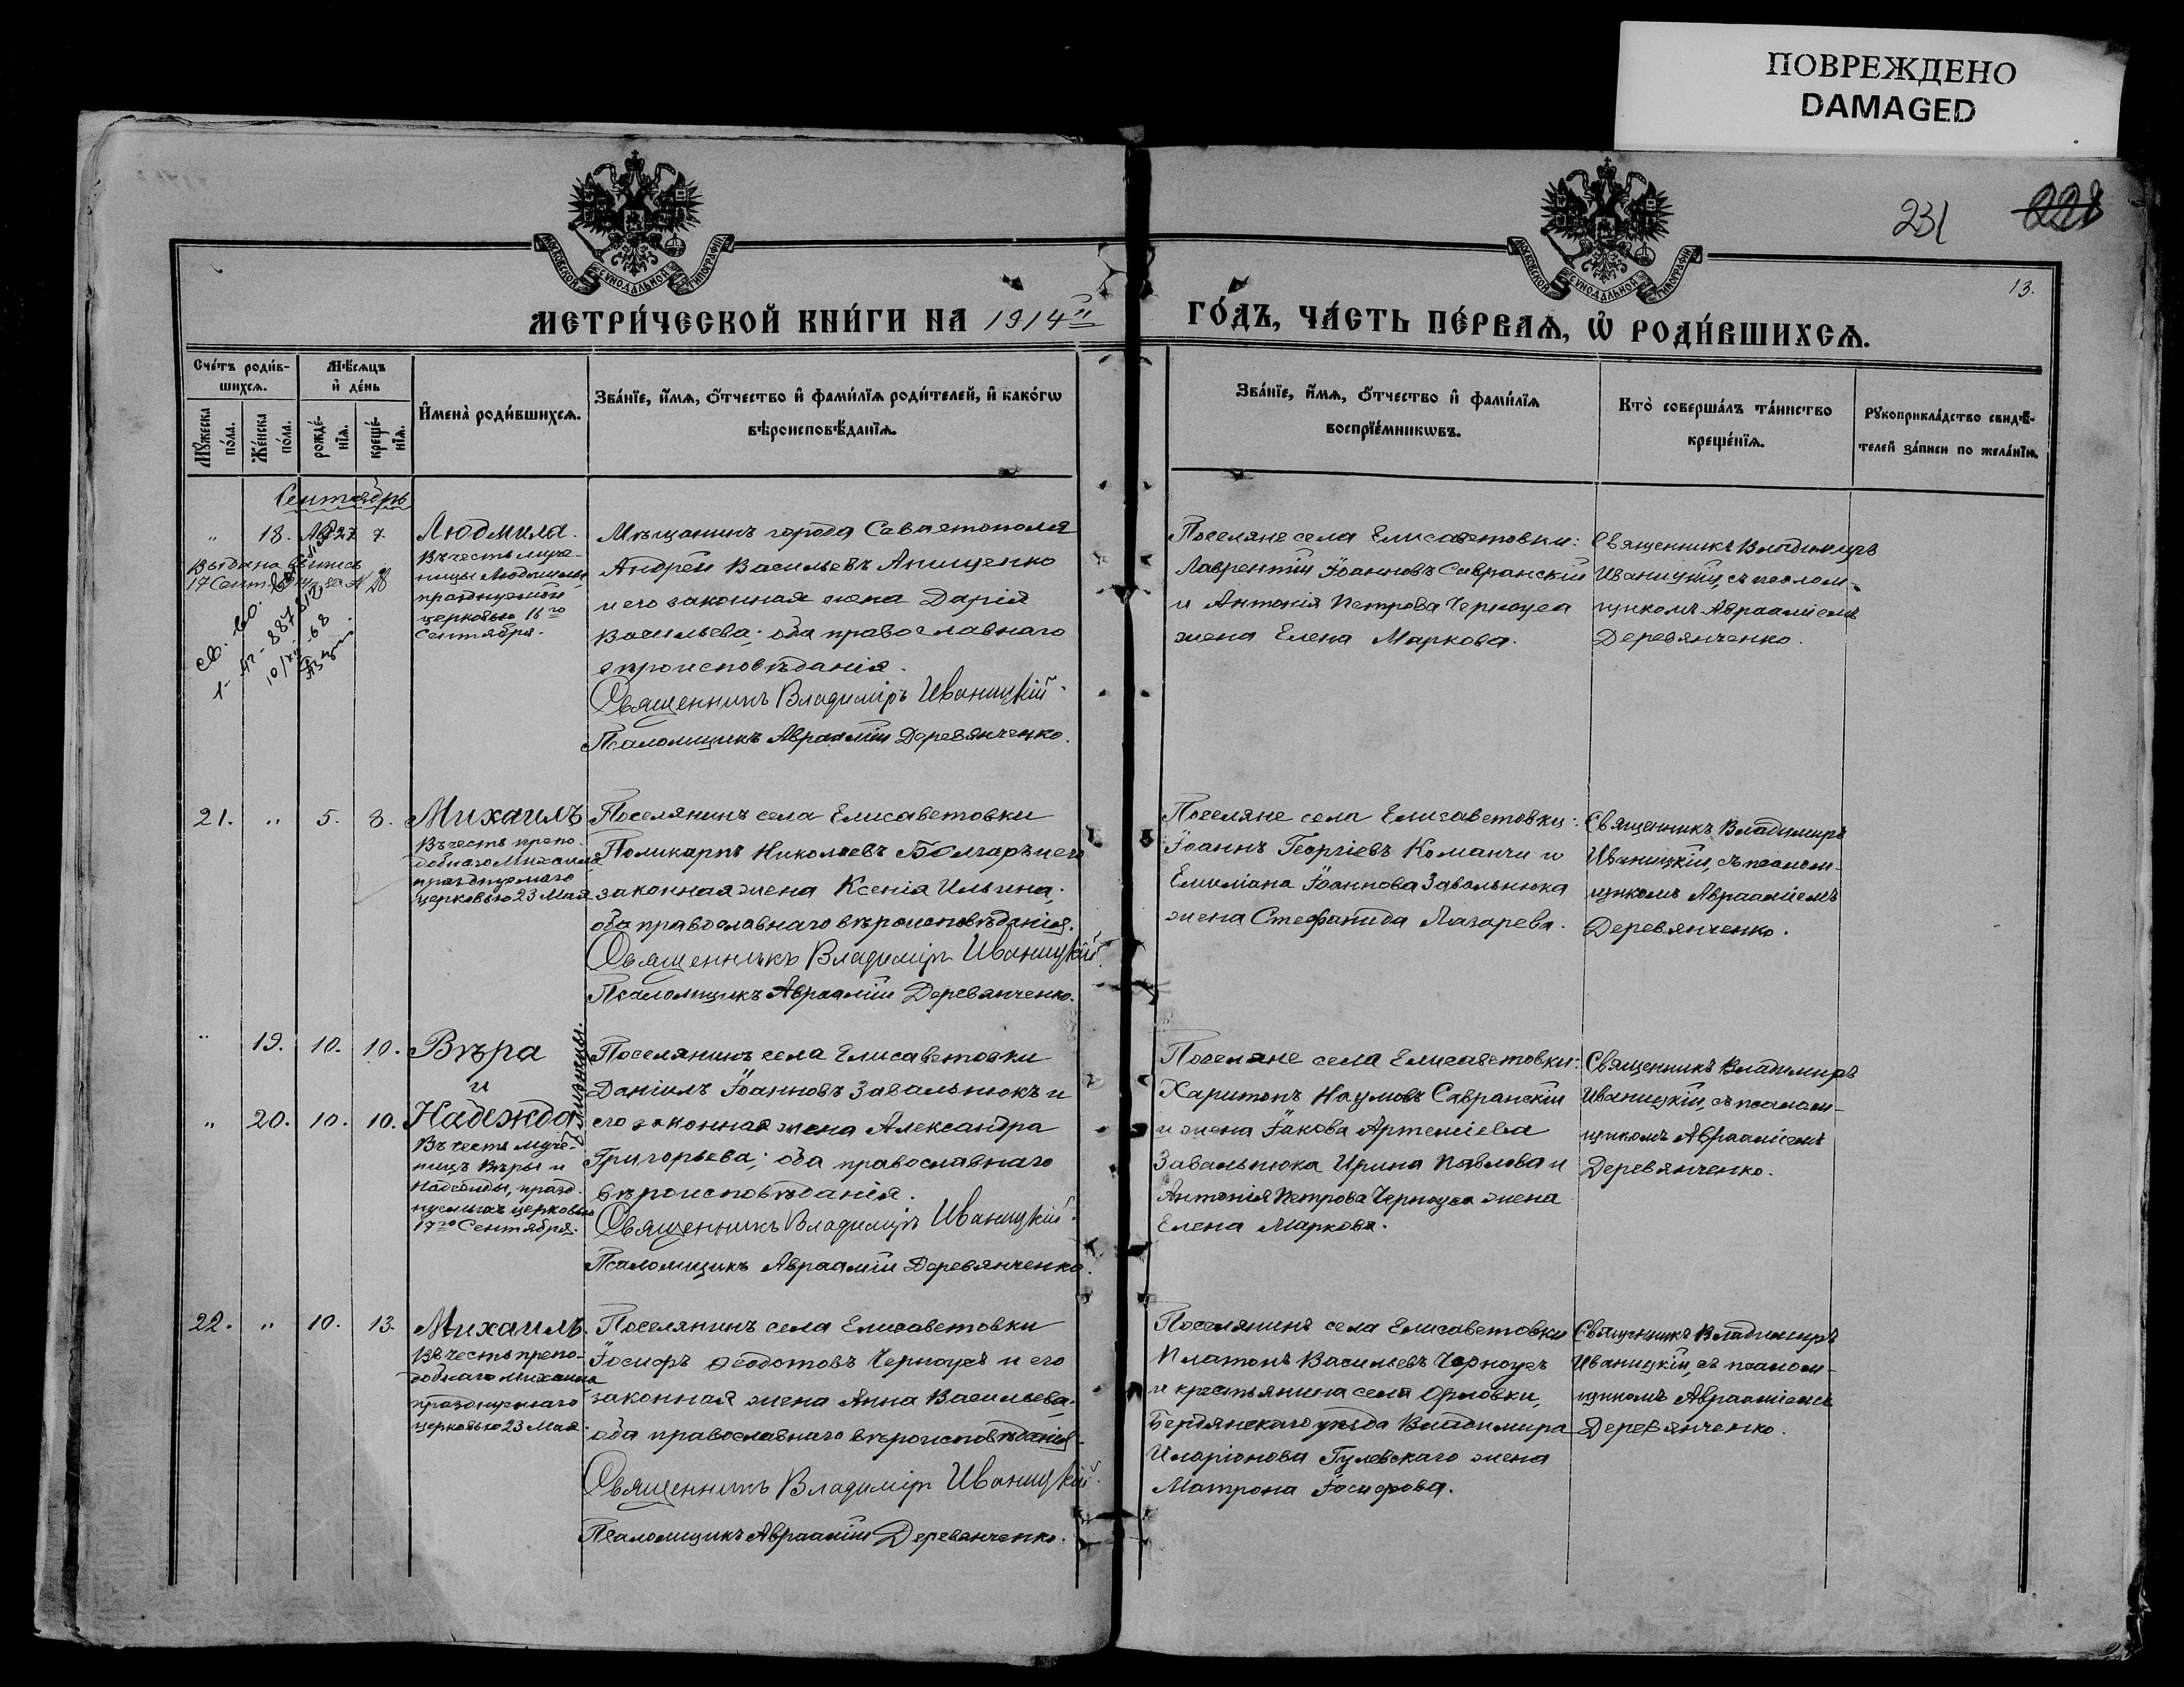 ПОВРЕЖДЕНО
DAMAGED
231
228
13.
МОСКОВСКОЙ СѴНОДАЛЬНОЙ ТИПОГРАФІИ
МОСКОВСКОЙ СѴНОДАЛЬНОЙ ТИПОГРАФІИ
МЕТРИ́ЧЕСКОЙ КНИ́ГИ НА 1914й ГО́ДЪ, ЧА́СТЬ ПЕ́РВАѦ, Ѡ҆ РОДИ́ВШИХСѦ.
Сче́тъ роди́в-
шихсѧ.
Мѹ́жеска по́ла.
Же́нска по́ла.
Мѣ́сѧцъ
и҆ де́нь
рожде́-
нїѧ.
креще́-
нїѧ.
И҆мена̀ роди́вшихсѧ.
Зва́нїе, и҆́мѧ, ѻ҆́тчество и҆ фами́лїѧ роди́телей, и҆ како́гѡ
вѣроисповѣ́данїѧ.
Зва́нїе, и҆́мѧ, ѻ҆́тчество и҆ фами́лїѧ
воспрїе́мникѡвъ.
Кто̀ соверша́лъ та́инство
креще́нїѧ.
Рѹкоприкла́дство свидѣ́-
телей за́писи по жела́нїю.
Сентябрь
" 18. Авг 27 7.
Выдана выпись
17 Сент.
Людмила.
Въ честь муче-
ницы Людмилы,
празднуемой
церковью 16го
Сентября.
Мѣщанинъ города Севастополя
Андрей Васильевъ Анищенко
и его законная жена Дарія
Васильева; оба православнаго
вѣроисповѣданія.
Священникъ Владиміръ Иваницкій
Псаломщикъ Авраамій Деревянченко.
Поселяне села Елисаветовки:
Лаврентій Іоанновъ Савранскій
и Антонія Петрова Черноуса
жена Елена Маркова.
Священникъ Владимиръ
Иваницкій, съ псалом-
щикомъ Авраамiемъ
Деревянченко.
21. " 5. 8.
Михаилъ
Въ честь препо-
добнаго Михаила
празднуемаго
церковью 23 Мая
Поселянинъ села Елисаветовки
Поликарпъ Николаевъ Болгаръ и его
законная жена Ксенія Ильина;
оба православнаго вѣроисповѣданія.
Священникъ Владиміръ Иваницкій
Псаломщикъ Авраамій Деревянченко.
Поселяне села Елисаветовки:
Іоаннъ Георгіевъ Команчи и
Емиліана Іоаннова Завальнюка
жена Стефанида Лазарева.
Священникъ Владимиръ
Иваницкій, съ псалом-
щикомъ Авраамiемъ
Деревянченко.
" 19. 10. 10.
Вѣра
и
" 20. 10. 10.
Надежда
близнецы.
Въ честь муче-
ницъ Вѣры и
Надежды, празд-
нуемыхъ церковью
17го Сентября.
Поселянинъ села Елисаветовки
Даніилъ Іоанновъ Завальнюкъ и
его законная жена Александра
Григорьева; оба православнаго
вѣроисповѣданія.
Священникъ Владиміръ Иваницкій
Псаломщикъ Авраамій Деревянченко.
Поселяне села Елисаветовки:
Харитонъ Наумовъ Савранскій
и жена Іакова Артеміева
Завальнюка Ирина Павлова и
Антонія Петрова Черноуса жена
Елена Маркова.
Священникъ Владимиръ
Иваницкій, съ псалом-
щикомъ Авраамiемъ
Деревянченко.
22. " 10. 13.
Михаилъ.
Въ честь препо-
добнаго Михаила
празднуемаго
церковью 23 Мая
Поселянинъ села Елисаветовки
Іосифъ Ѳеодотовъ Черноусъ и его
законная жена Анна Васильева,
оба православнаго вѣроисповѣданія.
Священникъ Владиміръ Иваницкій
Псаломщикъ Авраамій Деревянченко.
Поселянинъ села Елисаветовки
Платонъ Васильевъ Черноусъ
и крестьянина села Орловки,
Бердянскаго уѣзда Владимира
Иларіонова Гулевскаго жена
Матрона Іосифова.
Священникъ Владимиръ
Иваницкій, съ псалом-
щикомъ Авраамiемъ
Деревянченко.